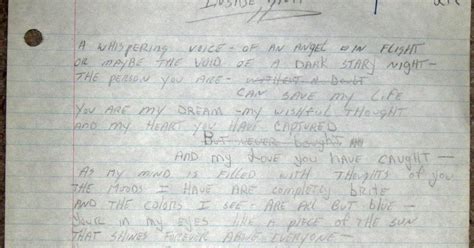 A WHISPERING VOICE - OF AN ANGEL IN FLIGHT
OR MAYBE THE VOID OF A DARK STARY NIGHT -
THE PERSON YOU ARE - WITHOUT A DOUBT
CAN SAVE MY LIFE
YOU ARE MY DREAM - MY WISHFUL THOUGHT
AND MY HEART YOU HAVE CAPTURED
BUT NEVER BOUGHT
AND MY LOVE YOU HAVE CAUGHT -
AS MY MIND IS FILLED WITH THOUGHTS OF YOU
THE MOODS I HAVE ARE COMPLETELY
AND THE COLORS I SEE - ARE ALL BUT BLUE -
YOUR IN MY EYES LIKE A PIECE OF THE SUN
THAT SHINES FOREVER ABOVE EVERYONE -